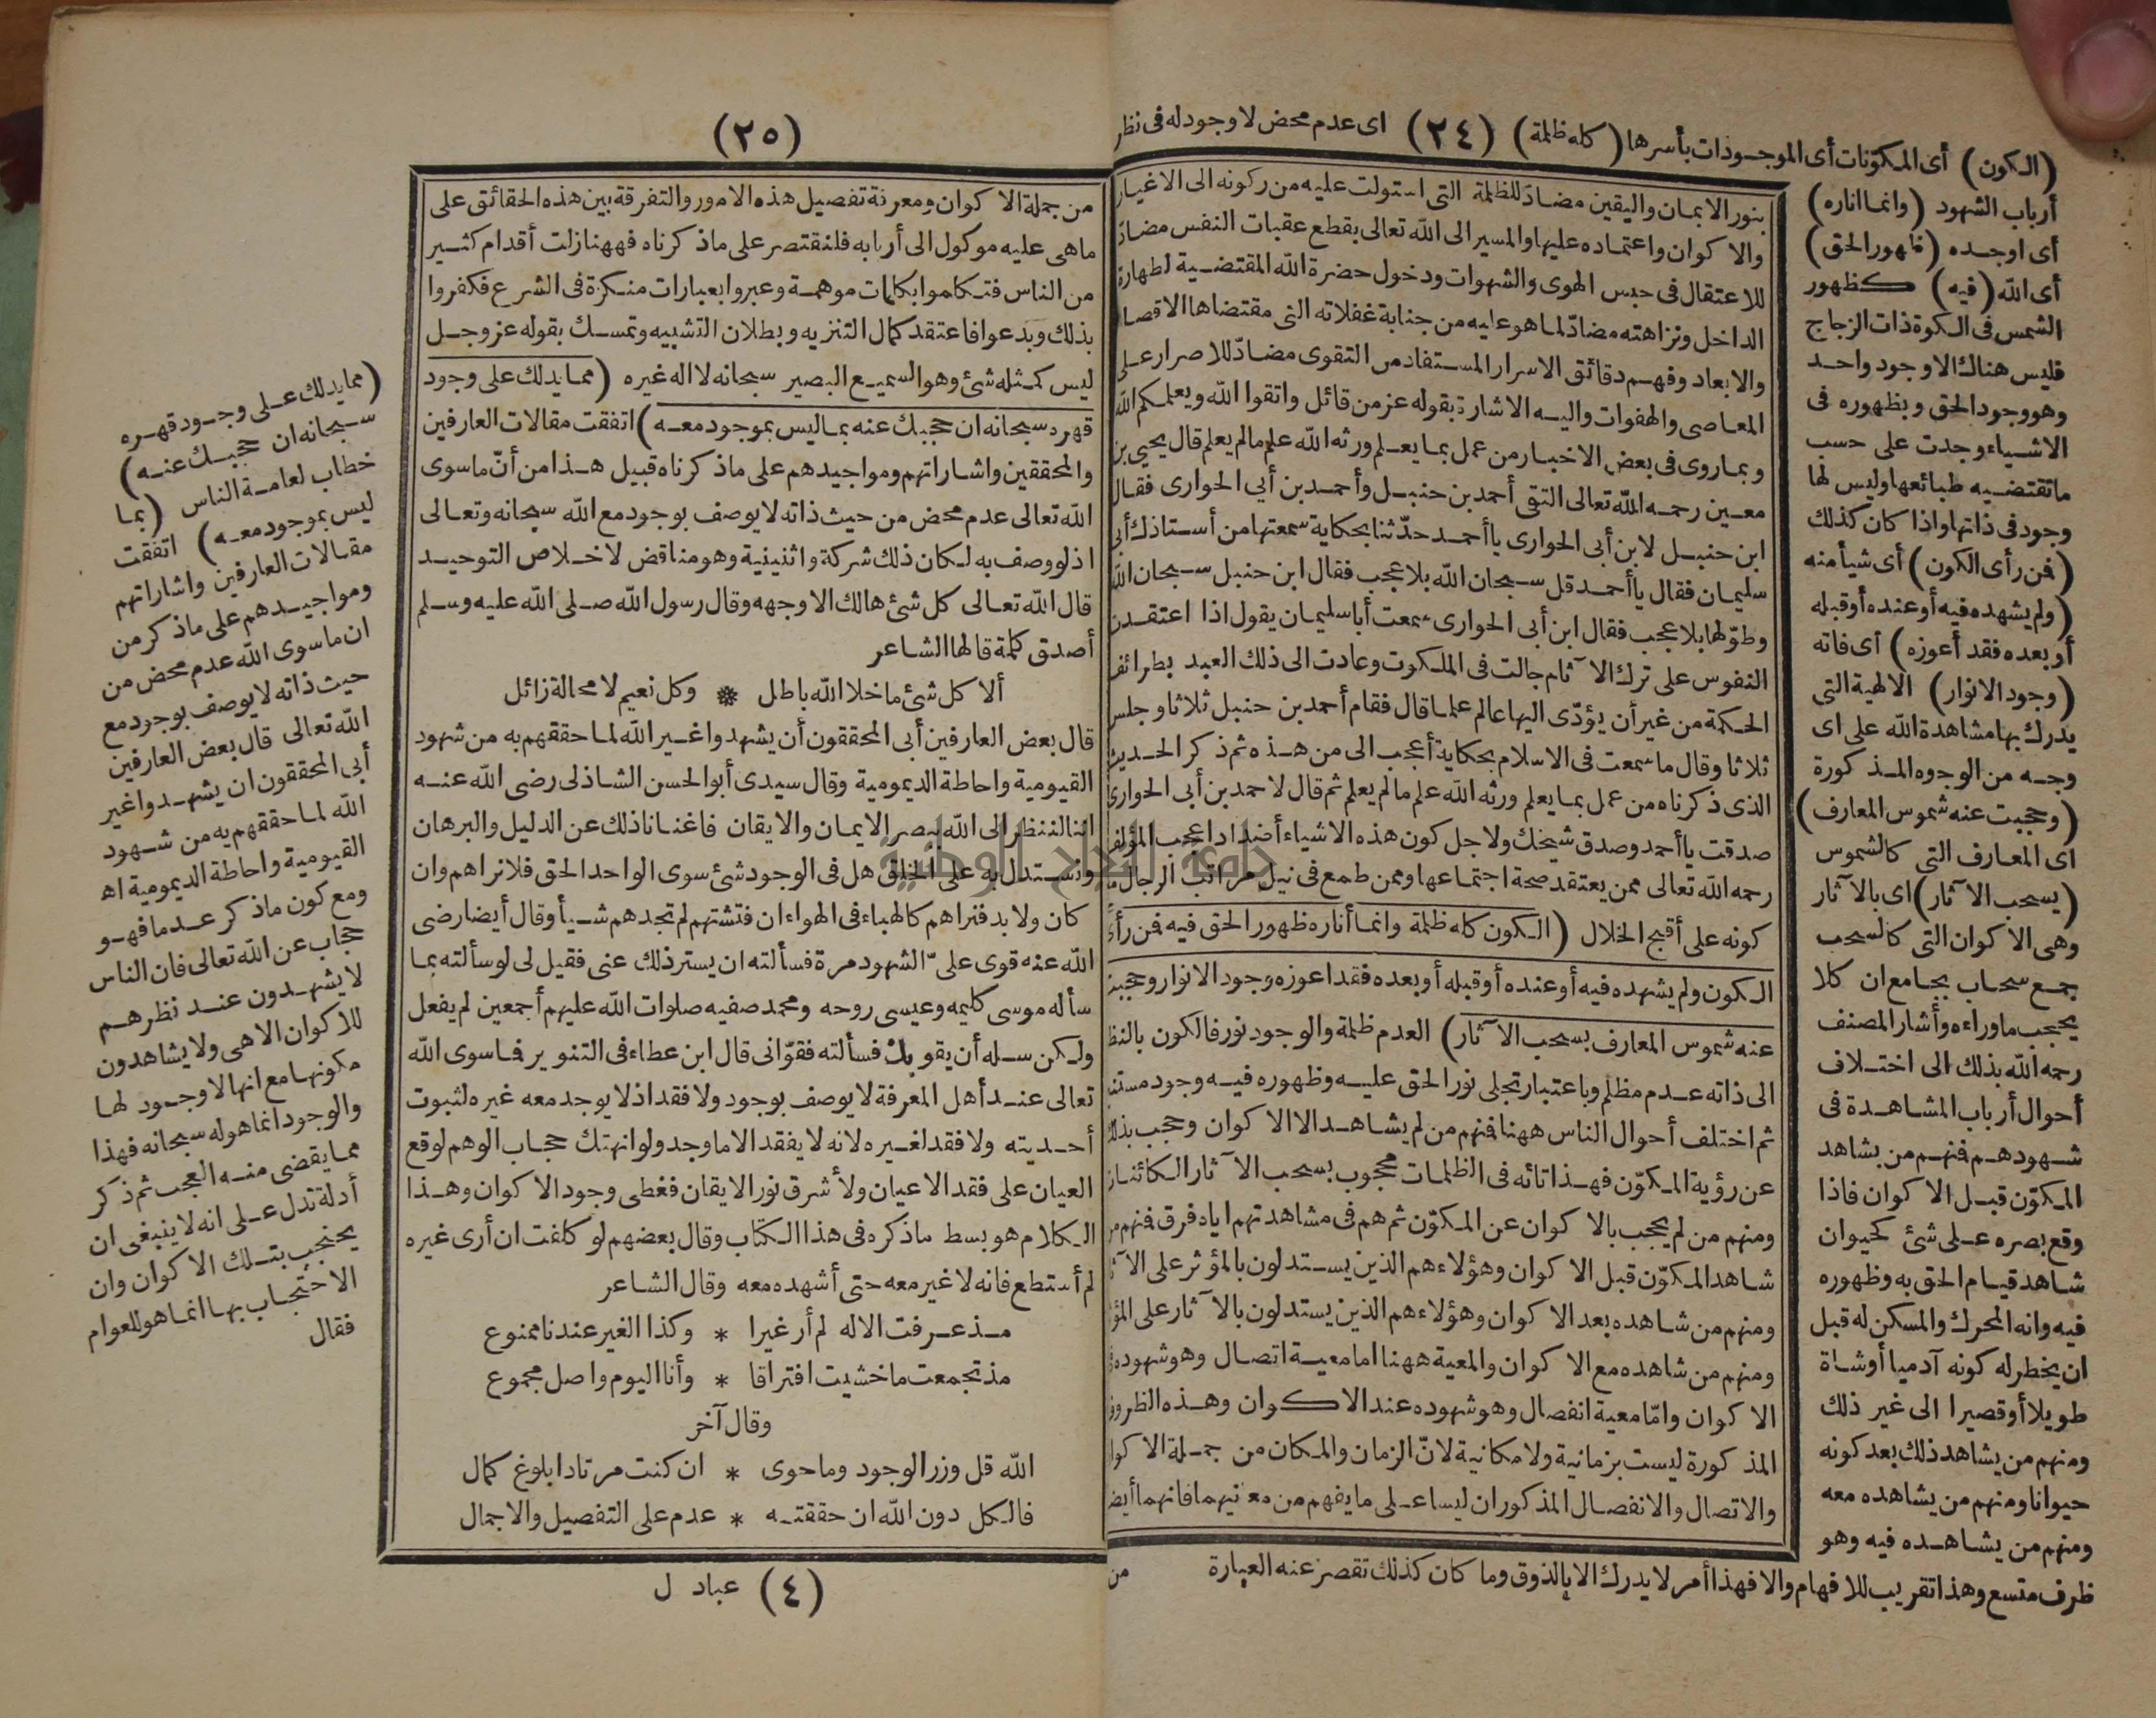 (٢٤)
(الكون) أى المكوّنات أى الموجودات بأسرها (كله ظلمة) اى عدم محض لا وجود له فى نظر
أرباب الشهود (وانما اناره)
أى اوجده (ظهور الحق)
أى الله (فيه) كظهور
الشمس فى الكوة ذات الزجاج
فليس هناك الا وجود واحد
وهو وجود الحق وبظهوره فى
الاشياء وجدت على حسب
ما تقتضيه طبائعها وليس لها
وجود فى ذاتها واذا كان كذلك
(فمن رأى الكون) أى شيأ منه
(ولم يشهده فيه أو عنده أو قبله
أو بعده فقد أعوزه) أى فاته
(وجود الانوار) الالهية التى
يدرك بها مشاهدة الله على اى
وجه من الوجوه المذكورة
(وحجبت عنه شموس المعارف)
اى المعارف التى كالشموس
(بسحب الآثار) اى بالآثار
وهى الاكوان التى كالسحب
جمع سحاب بجامع ان كلا
يحجب ما وراءه وأشار المصنف
رحمه الله بذلك الى اختلاف
أحوال أرباب المشاهدة فى
شهودهم فنهم من يشاهد
المكوّن قبل الاكوان فاذا
وقع بصره على شئ كحيوان
شاهد قيام الحق به وظهوره
فيه وانه المحرك والمسكن له قبل
ان يخطر له كونه آدميا أو شاة
طويلا أو قصيرا الى غير ذلك
ومنهم من يشاهد ذلك بعد كونه
حيوانا ومنهم من يشاهده معه
ومنهم من يشاهده فيه وهو
ظرف متسع وهذا تقريب للافهام والا فهذا أمر لا يدرك الا بالذوق وما كان كذلك تقصر عنه العبارة
بنور الايمان واليقين مضادّ للظلمة التى استولت عليه من ركونه الى الاغيار
والاكوان واعتماده عليها والمسير الى الله تعالى بقطع عقبات النفس مضادّ
للاعتقال فى حبس الهوى والشهوات ودخول حضرة الله المقتضية لطهارة
الداخل ونزاهته مضادّ لما هو عليه من جنابة غفلاته التى مقتضاها الاقصا
والابعاد وفهم دقائق الاسرار المستفاد من التقوى مضادّ للاصرار على
المعاصى والهفوات واليه الاشارة بقوله عز من قائل واتقوا الله ويعلمكم الله
وبما روى فى بعض الاخبار من عمل بما يعلم ورثه الله علم ما لم يعلم قال يحيى بن
معين رحمه الله تعالى التقى أحمد بن حنبل وأحمد بن أبي الحوارى فقال
ابن حنبل لابن أبى الحوارى يا أحمد حدّثنا بحكاية سمعتها من أستاذك أبى
سليمان فقال يا أحمد قل سبحان الله بلا عجب فقال ابن حنبل سبحان الله
وطوّلها بلا عجب فقال ابن أبى الحوارى سمعت أبا سليمان يقول اذا اعتقدن
النفوس على ترك الآثام جالت فى الملكوت وعادت الى ذلك العبد بطرائف
الحكمة من غير أن يؤدّى اليها عالم علما قال فقام أحمد بن حنبل ثلاثا وجلس
ثلاثا وقال ما سمعت فى الاسلام بحكاية أعجب الى من هذه ثم ذكر الحديث
الذى ذكرناه من عمل بما يعلم ورثه الله علم ما لم يعلم ثم قال لاحمد بن أبى الحوارى
صدقت يا أحمد وصدق شيخك ولاجل كون هذه الاشياء أضدادا عجب المؤلف
رحمه الله تعالى ممن يعتقد صحة اجتماعها وممن طمع فى نيل مراتب الرجال
كونه على أقبح الخلال (الكون كله ظلمة وانما أناره ظهور الحق فيه فمن رأى
الكون ولم يشهده فيه أو عنده أو قبله أو بعده فقد اعوزه وجود الانوار وحجبت
عنه شموس المعارف بسحب الآثار) العدم ظلمة والوجود نور فالكون بالنظر
الى ذاته عدم مظلم وباعتبار تجلى نور الحق عليه وظهوره فيه وجود مستنير
ثم اختلف أحوال الناس ههنا فنهم من لم يشاهد الا الاكوان وحجب بذلك
عن رؤية المكوّن فهذا تائه فى الظلمات محجوب بسحب الآثار الكائنات
ومنهم من لم يحجب بالاكوان عن المكوّن ثم هم فى مشاهدتهم اياه فرق فنهم من
شاهد المكوّن قبل الاكوان وهؤلاء هم الذين يستدلون بالمؤثر على الآثا
ومنهم من شاهده بعد الاكوان وهؤلاء هم الذين يستدلون بالآثار على المؤ
ومنهم من شاهده مع الاكوان والمعية ههنا اما معية اتصال وهو شهوده فى
الاكوان وامّا معية انفصال وهو شهوده عند الاكوان وهذه الظروف
المذكورة ليست بزمانية ولا مكانية لانّ الزمان والمكان من جملة الاكوان
والاتصال والانفصال المذكوران ليسا على ما يفهم من معنيهما فانهما أيضا
من
(٢٥)
من جملة الاكوان ومعرفة تفصيل هذه الامور والتفرقة بين هذه الحقائق على
ماهى عليه موكول الى أربابه فلنقتصر على ماذكرناه فههنا زلت أقدام كثير
من الناس فتكاموا بكلمات موهمة وعبروا بعبارات منكرة فى الشرع فكفروا
بذلك وبدعوا فاعتقد كمال التنزيه وبطلان التشبيه وتمسك بقوله عز وجل
ليس كمثله شئ وهو السميع البصير سبحانه لا اله غيره (مما يدلك على وجود
قهره سبحانه ان حجبك عنه بما ليس بموجود معه) اتفقت مقالات العارفين
والمحققين واشاراتهم ومواجيدهم على ماذكرناه قبيل هذا من أنّ ماسوى
الله تعالى عدم محض من حيث ذاته لا يوصف بوجود مع الله سبحانه وتعالى
اذ لو وصف به لكان ذلك شركة واثنينية وهو مناقض لاخلاص التوحيد
قال الله تعالى كل شئ هالك الا وجهه وقال رسول الله صلى الله عليه وسلم
أصدق كلمة قالها الشاعر
ألا كل شئ ما خلا الله باطل * وكل نعيم لا محالة زائل
قال بعض العارفين أبى المحققون أن يشهدوا غير الله لما حققهم به من شهود
القيومية واحاطة الديمومية وقال سيدى أبو الحسن الشاذلى رضى الله عنه
انا لننظر الى الله ببصر الايمان والايقان فاغنانا ذلك عن الدليل والبرهان
ونستدل به على الخلق هل فى الوجود شئ سوى الواحد الحق فلا نراهم وان
كان ولا بد فنراهم كالهباء فى الهواء ان فتشتهم لم تجدهم شيأ وقال أيضا رضى
الله عنه قوى علىّ الشهود مرة فسألته ان يستر ذلك عنى فقيل لى لو سألته بما
سأله موسى كليمه وعيسى روحه ومحمد صفيه صلوات الله عليهم أجمعين لم يفعل
ولكن سله أن يقويك فسألته فقوّانى قال ابن عطاء فى التنوير فما سوى الله
تعالى عند أهل المعرفة لا يوصف بوجود ولا فقد اذ لا يوجد معه غيره لثبوت
أحديته ولا فقد لغيره لانه لا يفقد الا ما وجد ولو انهتك حجاب الوهم لوقع
العيان على فقد الاعيان ولأشرق نور الايقان فغطى وجود الاكوان وهذا
الكلام هو بسط ماذكره فى هذا الكتاب وقال بعضهم لو كلفت ان أرى غيره
لم أستطع فانه لا غير معه حتى أشهده معه وقال الشاعر
مذ عرفت الاله لم أر غيرا * وكذا الغير عندنا ممنوع
مذ تجمعت ما خشيت افتراقا * وأنا اليوم واصل مجموع
وقال آخر
الله قل وزر الوجود وما حوى * ان كنت مرتادا بلوغ كمال
فالكل دون الله ان حققته * عدم على التفصيل والاجمال
(مما يدلك على وجود قهره
سبحانه ان حجبك عنه)
خطاب لعامة الناس (بما
ليس بموجود معه) اتفقت
مقالات العارفين واشاراتهم
ومواجيدهم على ماذكر من
ان ماسوى الله عدم محض من
حيث ذاته لا يوصف بوجود مع
الله تعالى قال بعض العارفين
أبى المحققون ان يشهدوا غير
الله لما حققهم به من شهود
القيومية واحاطة الديمومية اه
ومع كون ماذكر عدما فهو
حجاب عن الله تعالى فان الناس
لا يشهدون عند نظرهم
للاكوان الا هى ولا يشاهدون
مكونها مع انها لا وجود لها
والوجود انما هو له سبحانه فهذا
مما يقضى منه العجب ثم ذكر
أدلة تدل على انه لا ينبغى ان
يحتجب بتلك الاكوان وان
الاحتجاب بها انما هو للعوام
فقال
(٤) عباد ل
جامعة النجاح الوطنية